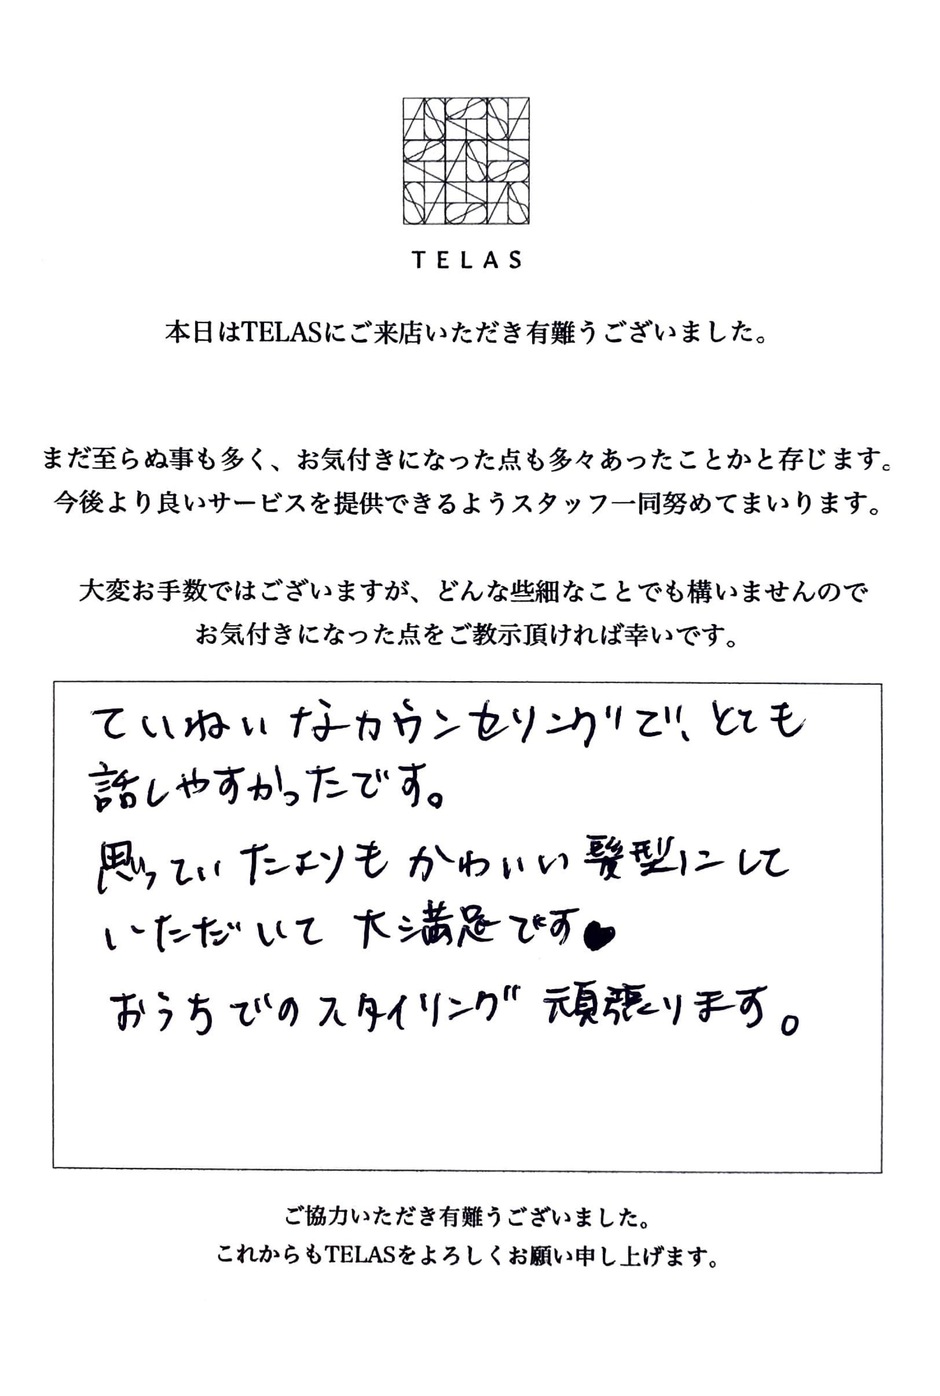 TELAS
本日はTELASにご来店いただき有難うございました。
まだ至らぬ事も多く、お気付きになった点も多々あったことかと存じます。
今後より良いサービスを提供できるようスタッフ一同努めてまいります。
大変お手数ではございますが、どんな些細なことでも構いませんので
お気付きになった点をご教示頂ければ幸いです。
ていねいなカウンセリングで、とても
話しやすかったです。
思っていたよりもかわいい髪型にして
いただいて大満足です♥
おうちでのスタイリング頑張ります。
ご協力いただき有難うございました。
これからもTELASをよろしくお願い申し上げます。